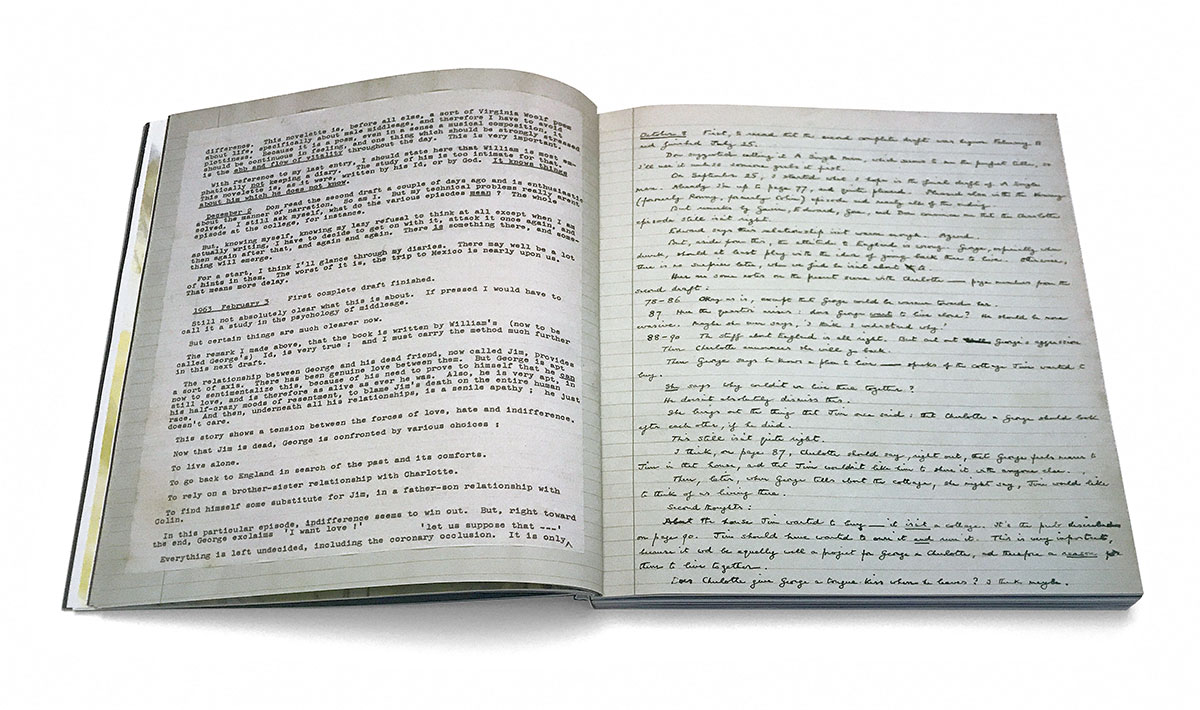 This novelette is, before all else, a sort of Virginia Woolf poem
about life, specifically about male middleage, and therefore I have to avoid
difference.
plottiness. Because it is a poem, even in a sense a musical composition, it
should be continuous in feeling, and one thing which should be strongly stressed
is the ebb and flow of vitality throughout the day. This is very important.
With reference to my last entry, I should state here that William is most em-
phatically not keeping a diary. The study of him is too intimate for that.
This novelette is, as it were, written by his Id, or by God. It knows things
about him which he does not know.
December 2 Don read the second draft a couple of days ago and is enthusiastic
about the manner of narration. So am I. But my technical problems really aren't
solved. I still ask myself, what do the various episodes mean? The whole
episode at the college, for instance.
But, knowing myself, knowing my lazy refusal to think at all except when I am
actually writing, I have to decide to get on with it, attack it once again, and
then again after that, and again and again. There is something there, and some-
thing will emerge.
For a start, I think I'll glance through my diaries. There may well be a lot
of hints in them. The worst of it is, the trip to Mexico is nearly upon us.
That means more delay.
1963 February 3 First complete draft finished.
Still not absolutely clear what this is about. If pressed I would have to
call it a study in the psychology of middleage.
But certain things are much clearer now.
The remark I made above, that the book is written by William's (now to be
called George's) Id, is very true ; and I must carry the method much further
in this next draft.
The relationship between George and his dead friend, now called Jim, provides
a sort of axis. There has been genuine love between them. But George is apt
now to sentimentalize this, because of his need to prove to himself that he can
still love, and is therefore as alive as ever he was. Also, he is very apt, in
his half-crazy moods of resentment, to blame Jim's death on the entire human
race. And then, underneath all his relationships, is a senile apathy ; he just
doesn't care.
This story shows a tension between the forces of love, hate and indifference.
Now that Jim is dead, George is confronted by various choices :
To live alone.
To go back to England in search of the past and its comforts.
To rely on a brother-sister relationship with Charlotte.
To find himself some substitute for Jim, in a father-son relationship with
Colin.
In this particular episode, indifference seems to win out. But, right toward
the end, George exclaims 'I want love !' 'let us suppose that ---'
Everything is left undecided, including the coronary occlusion. It is only
October 8 First, to record that the second complete draft was begun February 11
and finished July 25.
Don suggested calling it A Single Man, which seemed to me the perfect title, or
I'll and it must remain good at first.
On September 25, I started what I hope is the final draft of A Single
Man. Already I'm up to page 77, and quite pleased. Please also with the Kenny
(formerly Ronny, formerly Colin) episode and nearly all of the ending.
episode still isn't right.
Edward says their relationship isn't warm enough. Agreed.
But, aside from this, the attitude to England is wrong. George, especially when
drunk, should at least play with the idea of going back there to live. Otherwise,
there is no surprise later when we find he isn't about to.
Here are some notes on the present scene with Charlotte — page numbers from the
second draft :
78-86 Okay as is, except that George could be warmer towards her.
87. Here the question arises : does George want to live alone? He should be more
evasive. Maybe she even says, 'I think I understand why.'
88-90 The stuff about England is all right. But cut out George's aggression
Then Charlotte announces she will go back.
Then George says he knows a place to live — speaks of the cottage Jim wanted to
buy.
She says Why couldn't we live there together?
He doesn't absolutely dismiss this.
She brings out the thing that Jim once said : that Charlotte & George should look
after each other, if he died.
This still isn't quite right.
I think, on page 87, Charlotte should say, right out, that George feels nearer to
Jim in that house, and that Jim wouldn't like him to share it with anyone else.
Then, later, when George tells about the cottage, she might say, Jim would like
to think of us living there.
Second thoughts :
About the house Jim wanted to buy — it isn't a cottage. It's the pub described
on page 90. Jim should have wanted to own it and run it. This is very important,
because it wd be equally well a project for George & Charlotte, and therefore a reason for
them to live together.
Does Charlotte give George a tongue-kiss when he leaves? I think maybe.